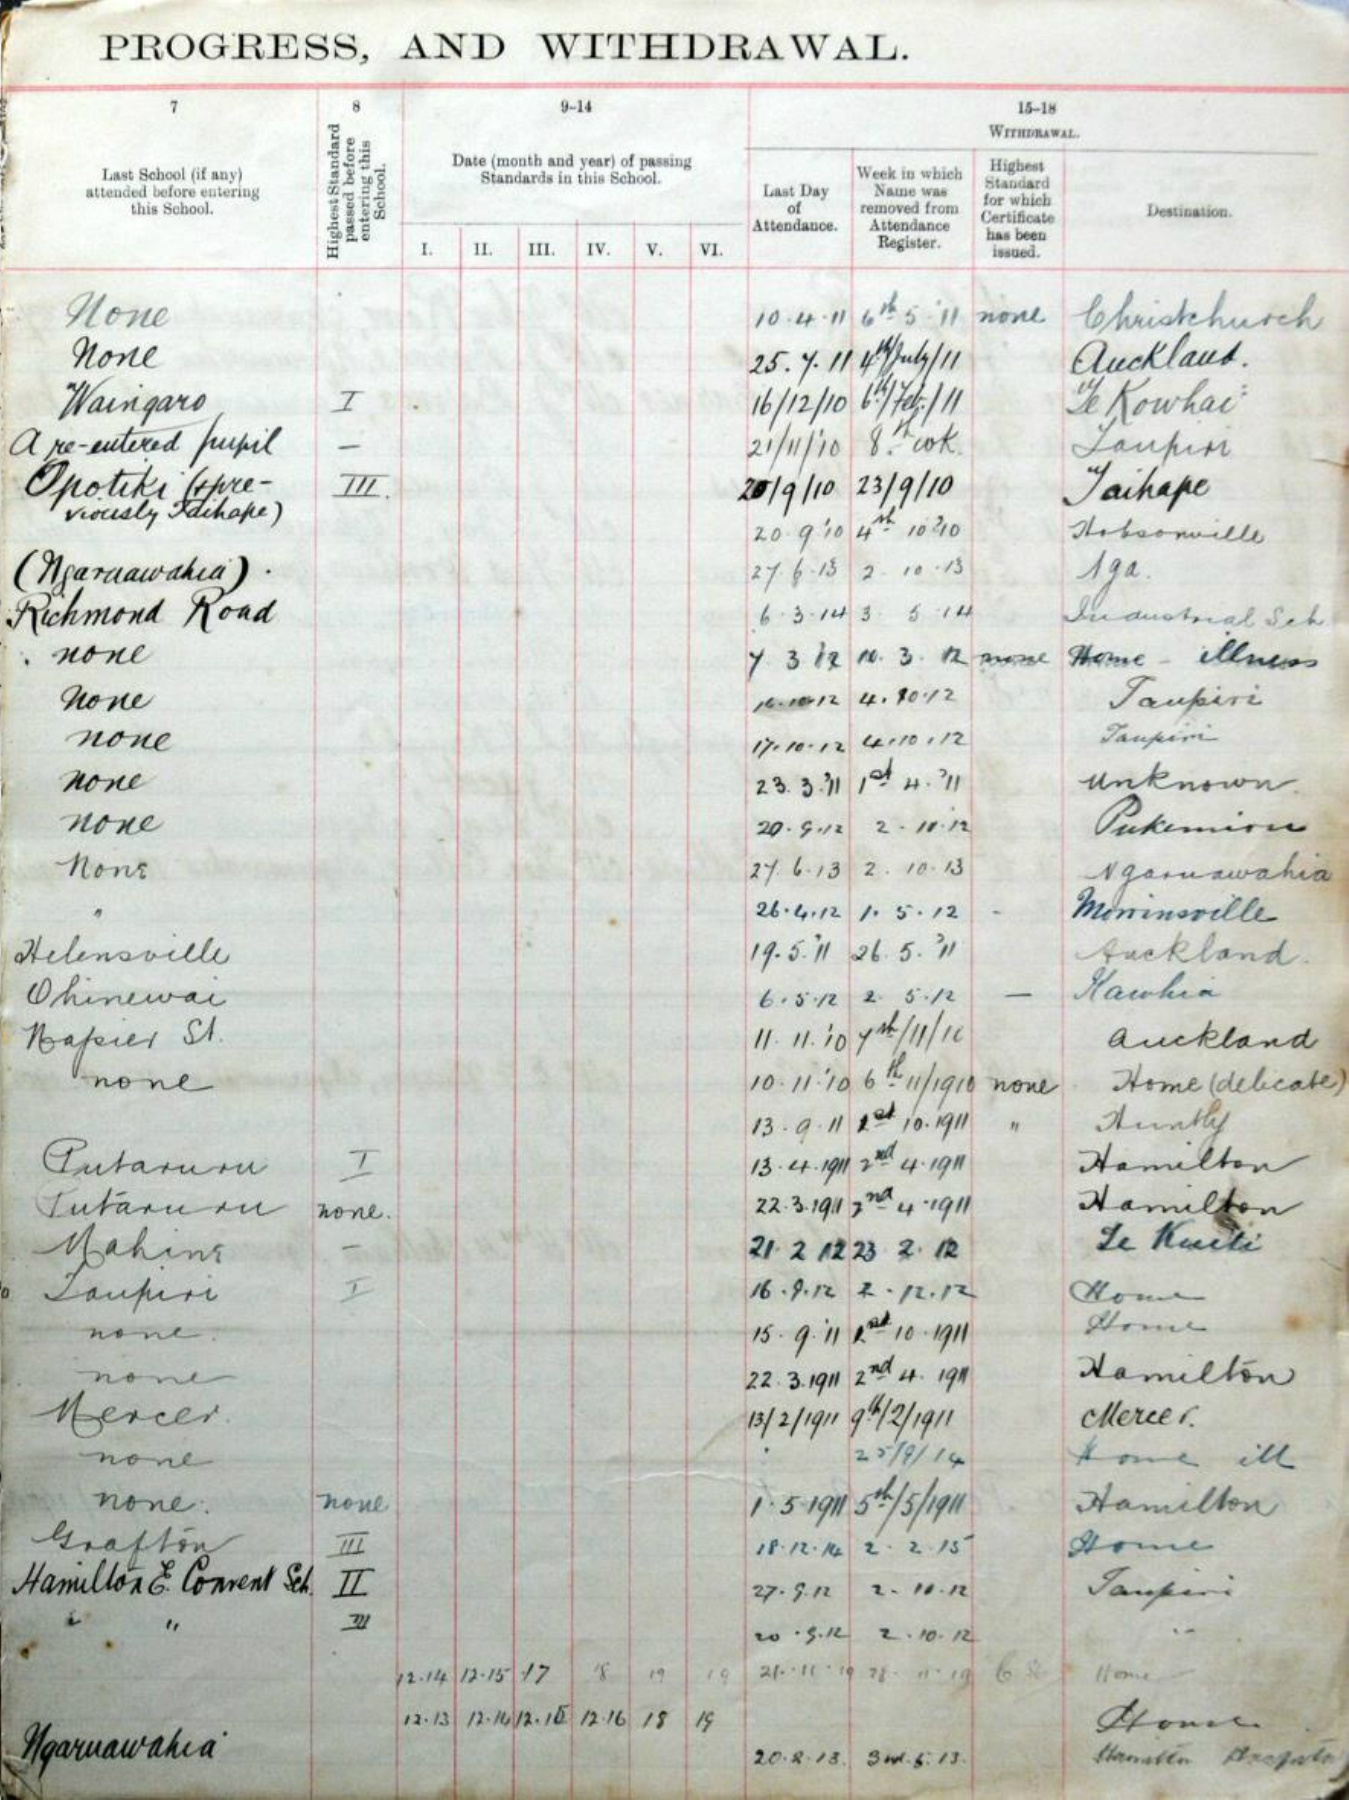 PROGRESS, AND WITHDRAWAL.
7 8 9–14 15–18
WITHDRAWAL.
Last School (if any) attended before entering this School.
Highest Standard passed before entering this School.
Date (month and year) of passing Standards in this School.
Last Day of Attendance.
Week in which Name was removed from Attendance Register.
Highest Standard for which Certificate has been issued.
Destination.
I. II. III. IV. V. VI.
None 10·4·11 6th 5 '11 none Christchurch
None 25.7.11 4th/July/11 Auckland.
Waingaro I 16/12/10 6th/Feb/11 Te Kowhai
A re-entered pupil — 21/11/'10 8th Taupiri
Opotiki (pre- III. 20/9/10 23/9/10 Taihape
viously Taihape)
20 9 '10 4th 10 '10 Hobsonville
(Ngaruawahia). 27·6·13 2·10·13 Nga.
Richmond Road 6·3·14 3 5 14 Industrial Sch
none 7 3 12 10. 3. 12 none Home - illness
None 16·10·12 4.10.12 Taupiri
none 17·10·12 4.10.12 Taupiri
none 23.3.'11 1st 4.'11 unknown
none 20·9·12 2-10·12
None 27 6·13 2. 10·13 Ngaruawahia
" 26·4·12 1. 5·12 - Morrinsville
Helensville 19·5.'11 26. 5. '11 Auckland.
Ohinewai 6·5·12 2 5·12 — Kawhia
Napier St. 11. 11.'10 7th/11/10 Auckland
none 10·11·'10 6th 11/1910 none Home (delicate)
13·9·11 1st 10·1911 " Huntly
Putaruru I 13·4·1911 2nd 4·1911 Hamilton
Putaruru none. 22.3.1911 2nd 4·1911 Hamilton
Mahine - 21 2 12 23 2. 12 Te Kuiti
Taupiri I 16·9·12 2·12·12 Home
none. 15·9·'11 1st 10·1911 Home
none 22.3.1911 2nd 4. 1911 Hamilton
Mercer. 13/2/1911 9th/2/1911 Mercer.
none 25/9/14 Home ill
none. none 1·5·1911 5th/5/1911 Hamilton
Grafton III 18·12·14 2 2 15 Home
Hamilton E. Convent Sch. II 27·9·12 2-10·12 Taupiri
" " III 20·9·12 2·10·12 "
12·14 12·15 17 18 19 19 21·11·19 28 11·19 6 Home
12·13 12·14 12·15 12·16 18 19 Home
Ngaruawahia 20·8·13. 3rd. 5. 13. Hamilton